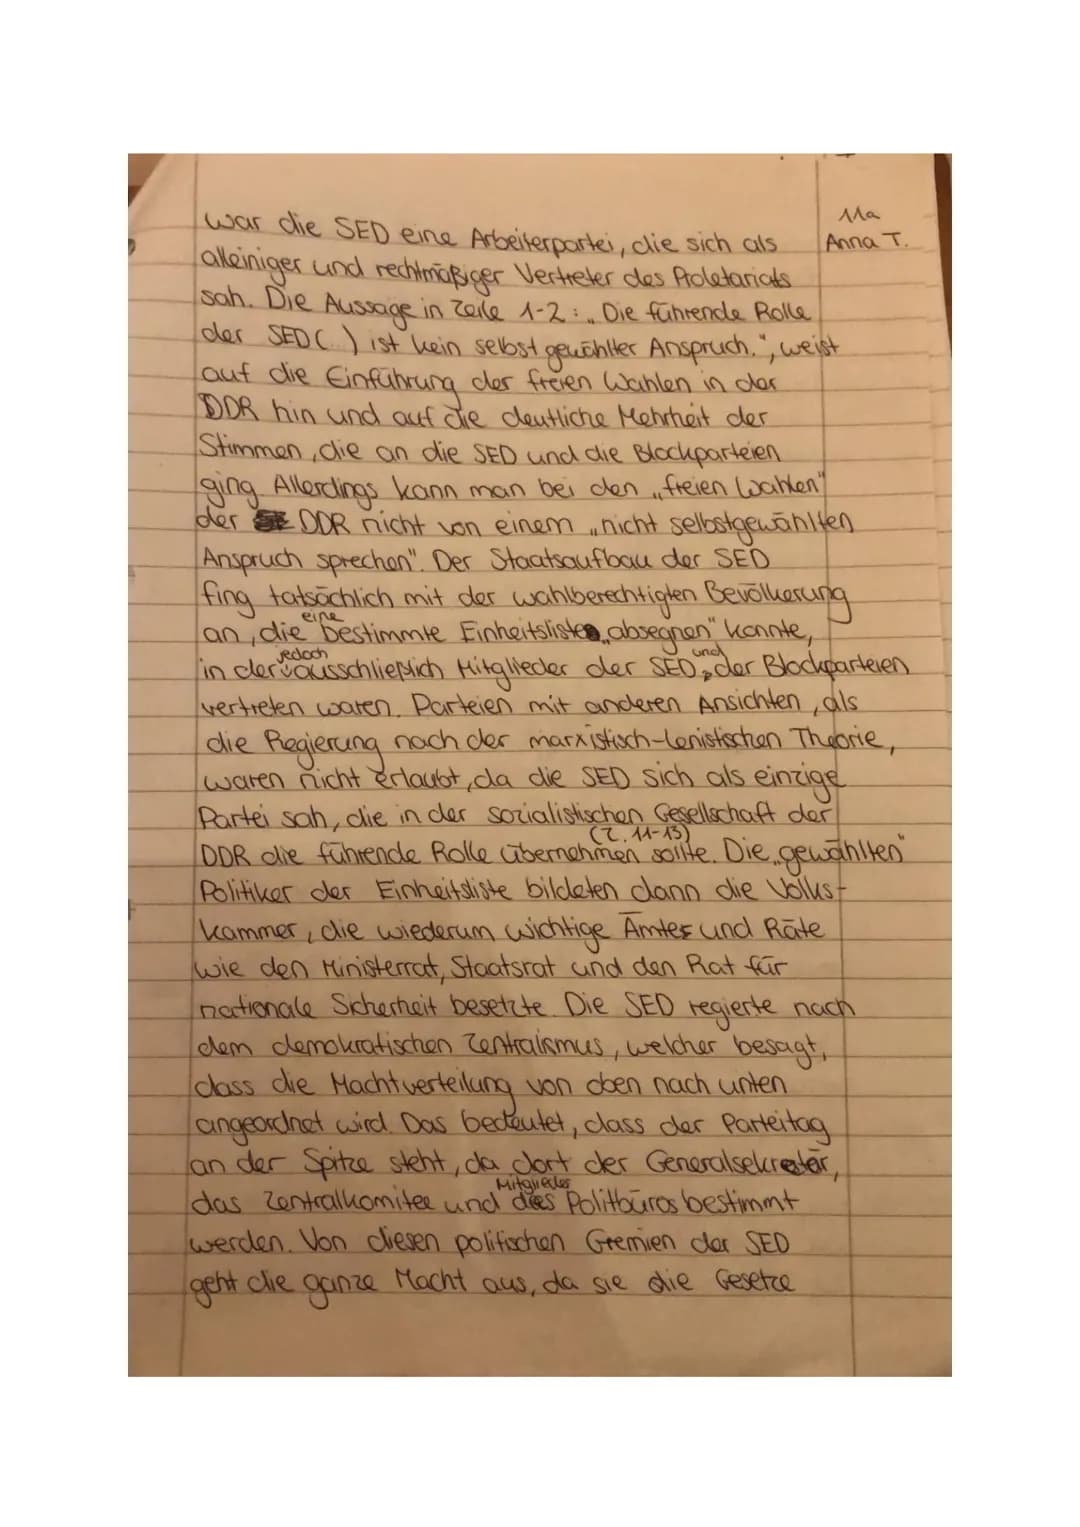 11a
war die SED eine Arbeiterpartei, die sich als
Anna T.
alleiniger und rechtmäßiger Vertreter des Proletariats
sah. Die Aussage in Zeile 1-2: „Die führende Rolle
der SED ( ) ist kein selbst gewählter Anspruch.", weist
auf die Einführung der freien Wahlen in der
DDR hin und auf die deutliche Mehrheit der
Stimmen, die an die SED und die Blockparteien
ging. Allerdings kann man bei den „freien Wahlen"
der DDR nicht von einem „nicht selbstgewählten
Anspruch sprechen". Der Staatsaufbau der SED
fing tatsächlich mit der wahlberechtigten Bevölkerung
an, die eine bestimmte Einheitsliste „absegnen" konnte,
in der jedoch ausschließlich Mitglieder der SED und der Blockparteien
vertreten waren. Parteien mit anderen Ansichten, als
die Regierung nach der marxistisch-lenistischen Theorie,
waren nicht erlaubt, da die SED sich als einzige
Partei sah, die in der sozialistischen Gesellschaft der
DDR die führende Rolle übernehmen sollte (Z. 11-13). Die „gewählten"
Politiker der Einheitsliste bildeten dann die Volks-
kammer, die wiederum wichtige Ämter und Räte
wie den Ministerrat, Staatsrat und den Rat für
nationale Sicherheit besetzte. Die SED regierte nach
dem demokratischen Zentralismus, welcher besagt,
dass die Machtverteilung von oben nach unten
angeordnet wird. Das bedeutet, dass der Parteitag
an der Spitze steht, da dort der Generalsekretär,
das Zentralkomitee und Mitglieder des Politbüros bestimmt
werden. Von diesen politischen Gremien der SED
geht die ganze Macht aus, da sie die Gesetze